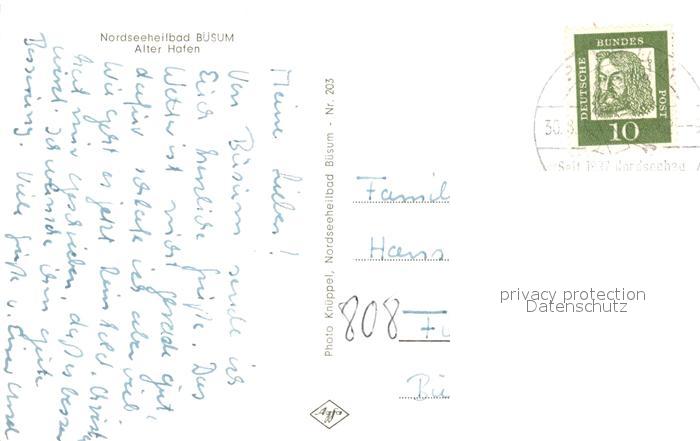 Nordseeheilbad BÜSUM
Alter Hafen
Meine Lieben!
Von Büsum sende ich
Euch herzliche Grüße. Das
Wetter ist nicht gerade gut,
dafür schlafe ich aber viel.
Wie geht es jetzt
hat mir geschrieben, daß es besser
wird. Ich wünsche ihm gute
Besserung. Viele Grüße v. Eurer
Photo Knüppel, Nordseeheilbad Büsum - Nr. 203
Agfa
DEUTSCHE
BUNDES
POST
10
30.8
Seit 1837 Nordseebad
Famil
Hans
808
privacy protection
Datenschutz